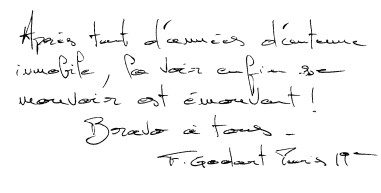 Après tant d'années d'antenne
immobile, la voir enfin se
mouvoir est émouvant !
Bravo à tous -
F. Godart Paris 19